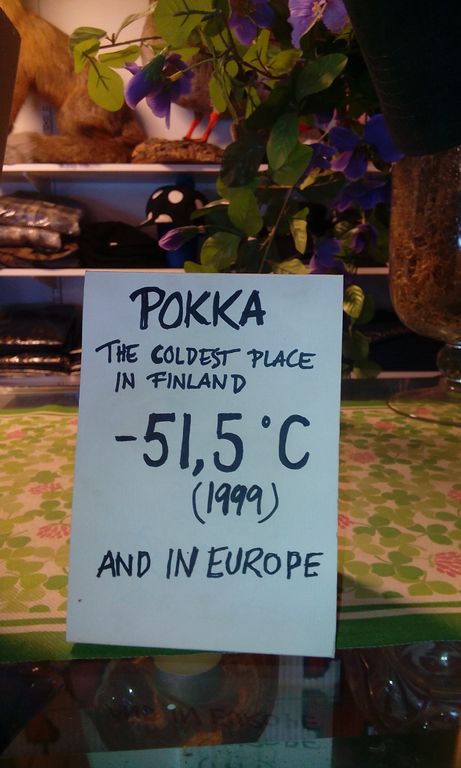 POKKA
THE COLDEST PLACE
IN FINLAND
-51,5°C
(1999)
AND IN EUROPE